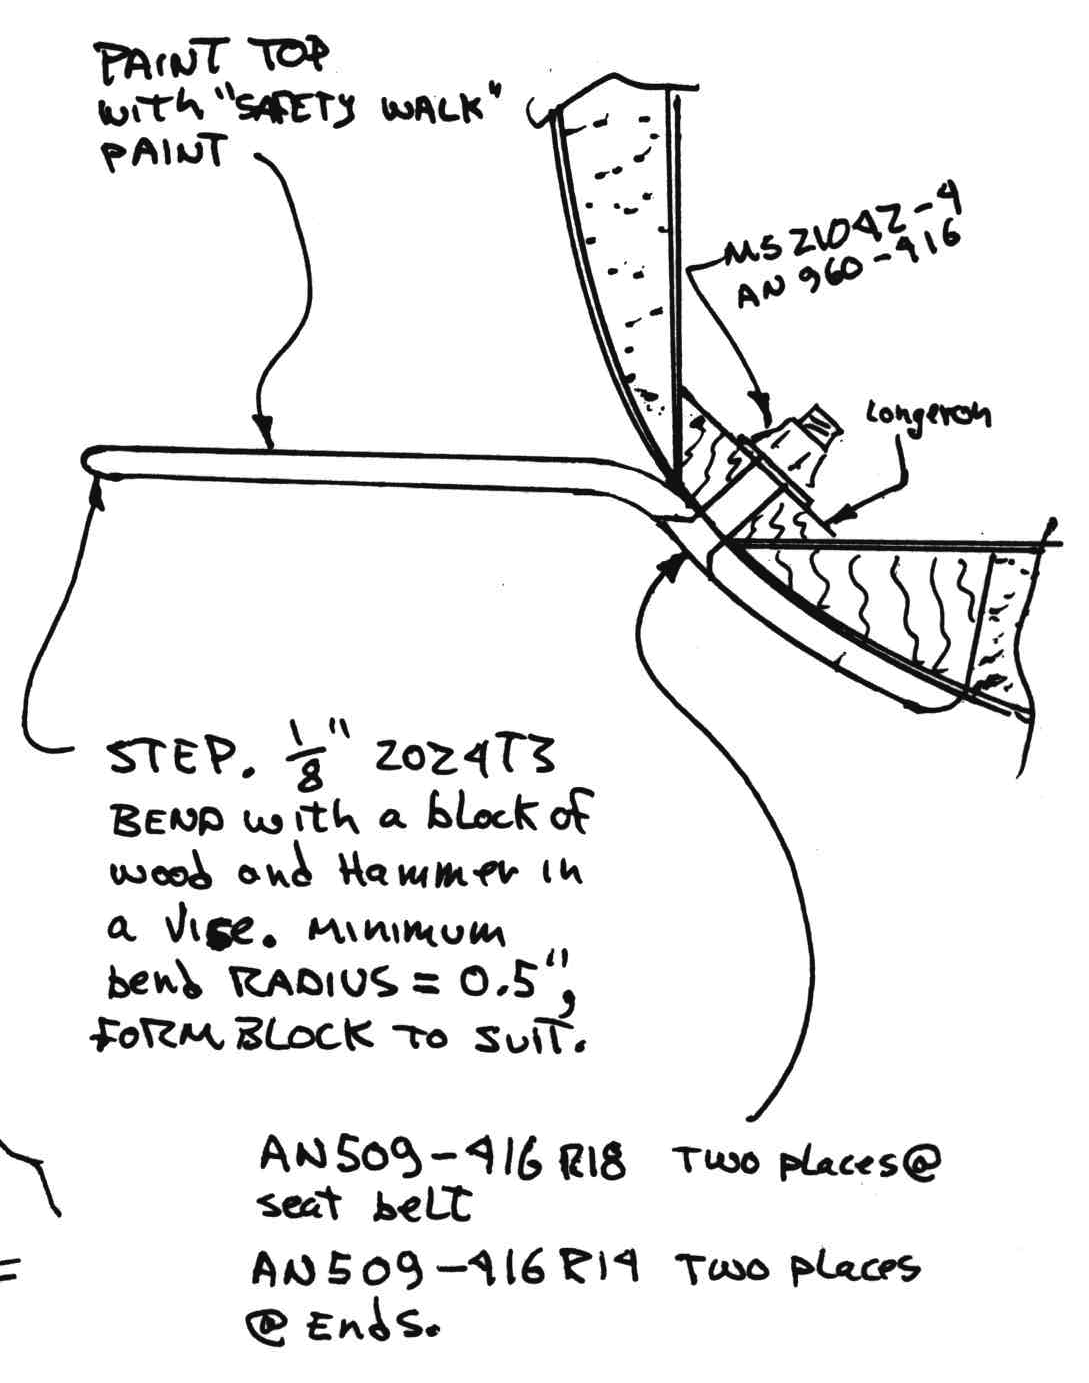 PAINT TOP
with "SAFETY WALK"
PAINT
MS21042-4
AN 960-416
Longeron
STEP. 1/8" 2024T3
BEND with a block of
wood and Hammer in
a Vise. MINIMUM
bend RADIUS = 0.5",
FORM BLOCK TO SUIT.
AN509-416R18 Two places@
seat belt
AN509-416R14 Two places
@ Ends.